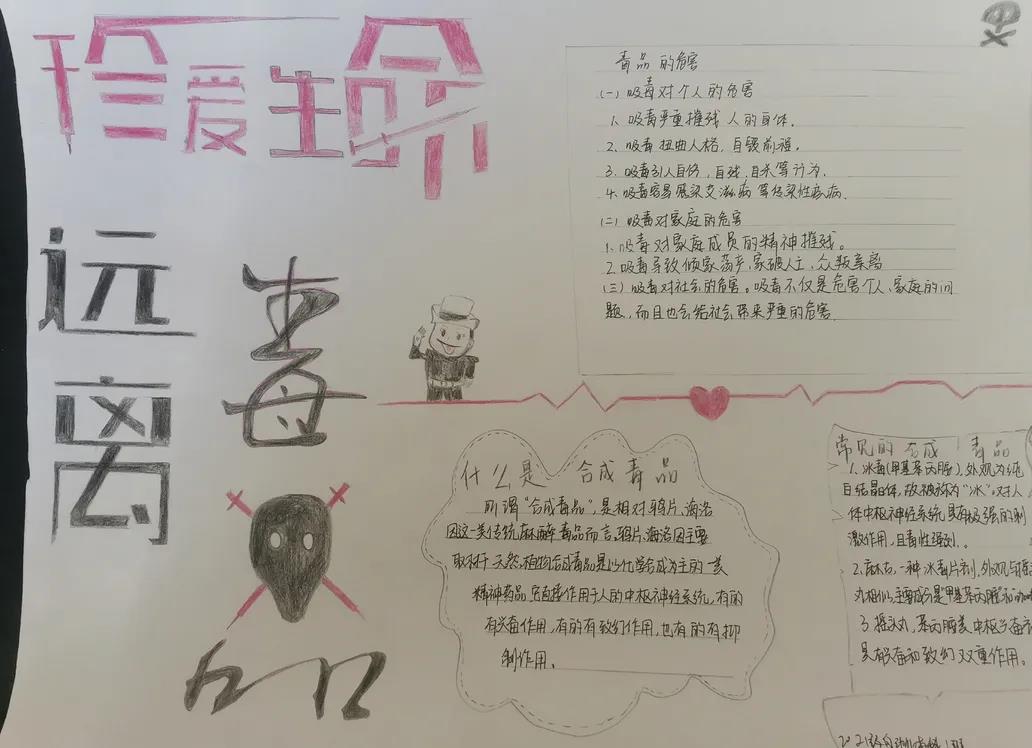 珍爱生命
远离
毒
品
毒品的危害
(一) 吸毒对个人的危害
1. 吸毒严重摧残 人的身体.
2. 吸毒 扭曲人格, 自毁前程.
3. 吸毒引人自伤, 自残, 自杀等行为.
4. 吸毒容易感染艾滋病 等传染性疾病.
(二) 吸毒对家庭的危害
1. 吸毒对家庭成员的精神摧残。
2. 吸毒导致倾家荡产, 家破人亡, 众叛亲离
(三) 吸毒对社会的危害。吸毒不仅是危害个人、家庭的问
题, 而且也会给社会带来严重的危害.
什么是 合成毒品
所谓“合成毒品”, 是相对鸦片、海洛
因这一类传统麻醉毒品而言, 鸦片、海洛因主要
取材于天然植物, 合成毒品是以化学合成为主的一类
精神药品, 它直接作用于人的中枢神经系统, 有的
有兴奋作用, 有的有致幻作用, 也有的有抑
制作用.
常见的合成 毒品
1. 冰毒(甲基苯丙胺), 外观为纯
白结晶体, 故被称为“冰”. 对人
体中枢神经系统具有极强的刺
激作用, 且毒性强烈.
2. 麻古, 一种冰毒片剂, 外观与摇
丸相似, 主要成分是“甲基苯丙胺”和
3. 摇头丸, 苯丙胺类中枢兴奋
具有兴奋和致幻双重作用。